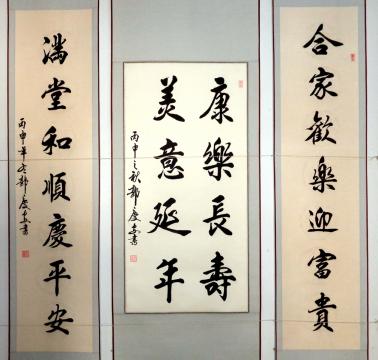 合家歡樂迎富貴
康樂長壽
美意延年
丙申之秋郭慶安書
滿堂和順慶平安
丙申年冬郭慶安書